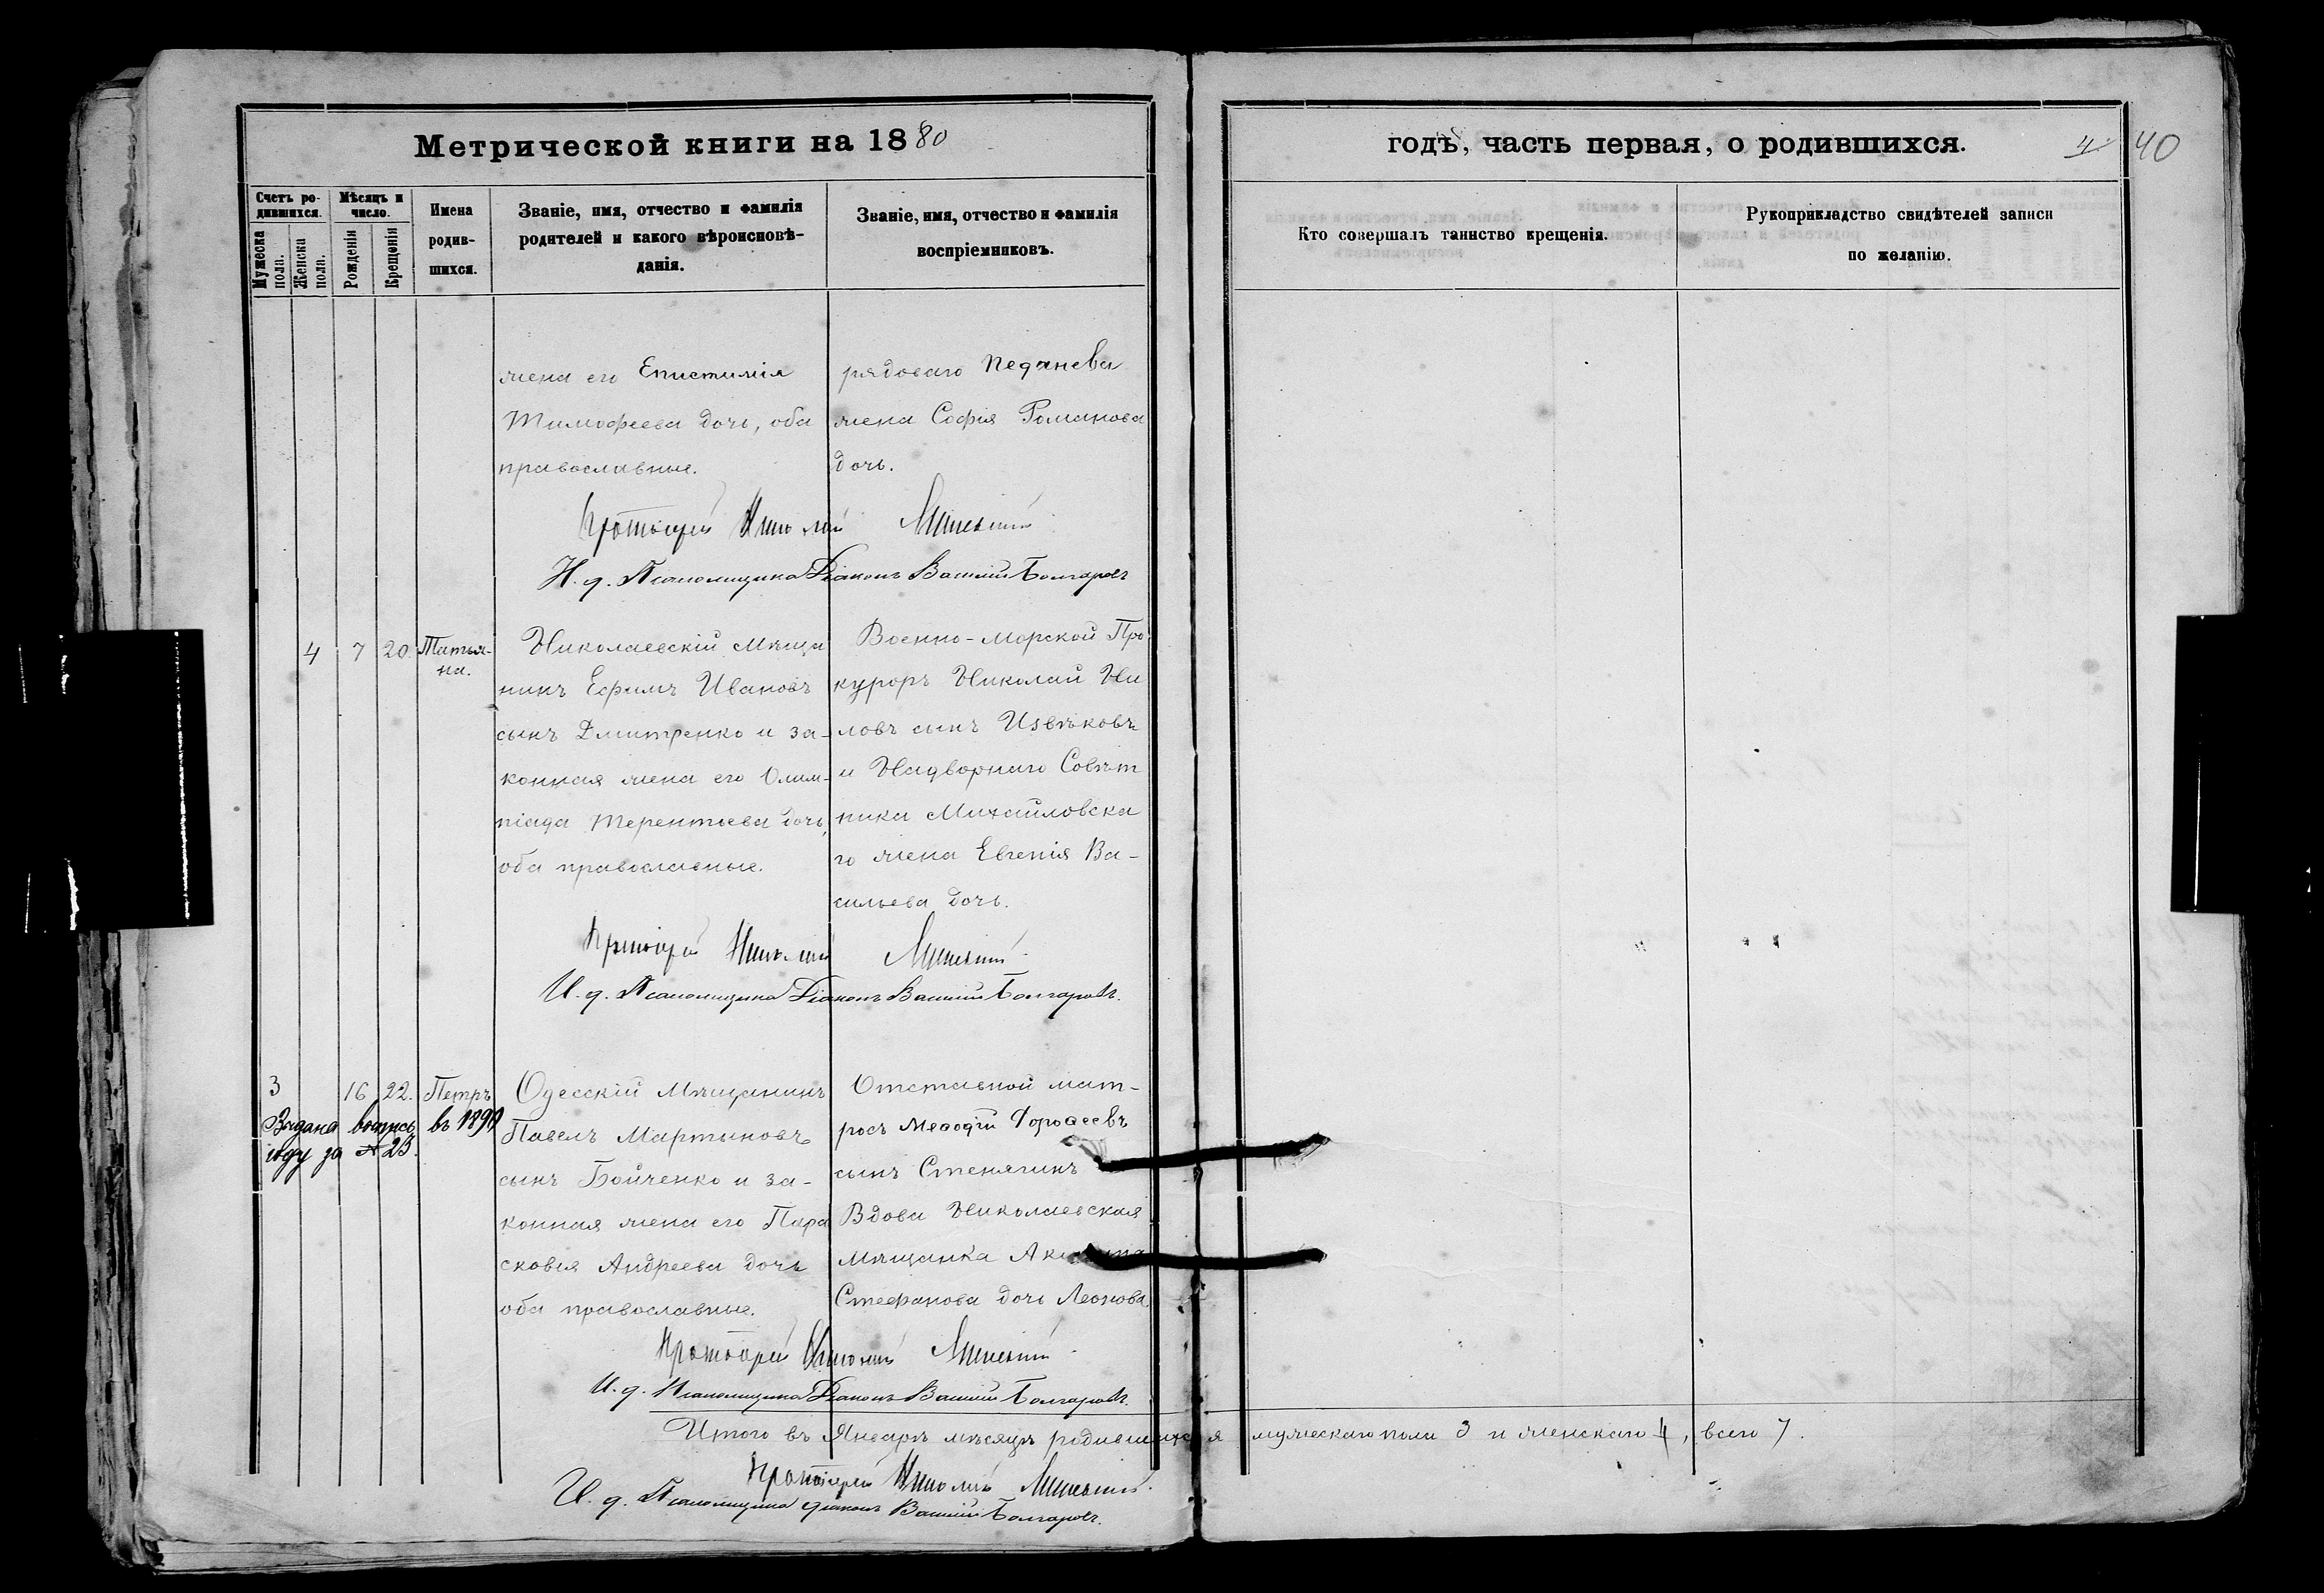 Метрической книги на 1880
годъ, часть первая, о родившихся.
4
40
Счетъ родившихся.
Мужеска пола.
Женска пола.
Мѣсяцъ и число.
Рожденія
Крещенія
Имена родившихся.
Званіе, имя, отчество и фамилія
родителей и какого вѣроисповѣ-
данія.
Званіе, имя, отчество и фамилія
воспріемниковъ.
Кто совершалъ таинство крещенія.
Рукоприкладство свидѣтелей записи
по желанію.
жена его Епистимія
Тимофеева дочь, оба
православные.
рядоваго Педанева
жена Софія Романова
дочь.
Протоіерей Николай
И. д. Псаломщика Діаконъ Василій Болгаровъ
4 7 20. Татья-
на.
Николаевскій Мѣща
нинъ Ефимъ Ивановъ
сынъ Дмитренко и за-
конная жена его Олим-
піада Терентьева дочь,
оба православные.
Военно-Морской Про
куроръ Николай Ни
ловъ сынъ Извѣковъ
и Надворнаго Совѣт
ника Михайловска
го жена Евгенія Ва-
сильева дочь.
Протоіерей Николай
И. д. Псаломщика Діаконъ Василій Болгаровъ.
3 16 22. Петръ
Выдана выпись въ
году за № 23.
Одесскій Мѣщанинъ
Павелъ Мартыновъ
сынъ Бойченко и за-
конная жена его Пара
сковія Андреева дочь
оба православные.
Отставной мат-
росъ Меѳодій Дороѳеевъ
сынъ Стенягинъ
Вдова Николаевская
мѣщанка
Стефанова дочь Леонова.
Протоіерей Николай
И. д. Псаломщика Діаконъ Василій Болгаровъ.
Итого въ Январѣ мѣсяцѣ родившихся мужескаго пола 3 и женскаго 4, всего 7.
Протоіерей Николай
И. д. Псаломщика діаконъ Василій Болгаровъ.